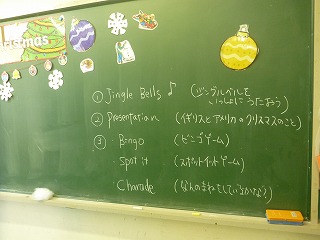 istmas
① Jingle Bells ♪ (ジングルベルを
いっしょにうたおう)
② Presentation (イギリスとアメリカのクリスマスのこと)
③ ・Bingo (ビンゴゲーム)
・Spot it (スポットイットゲーム)
・Charade (なんのまねをしているかな?)